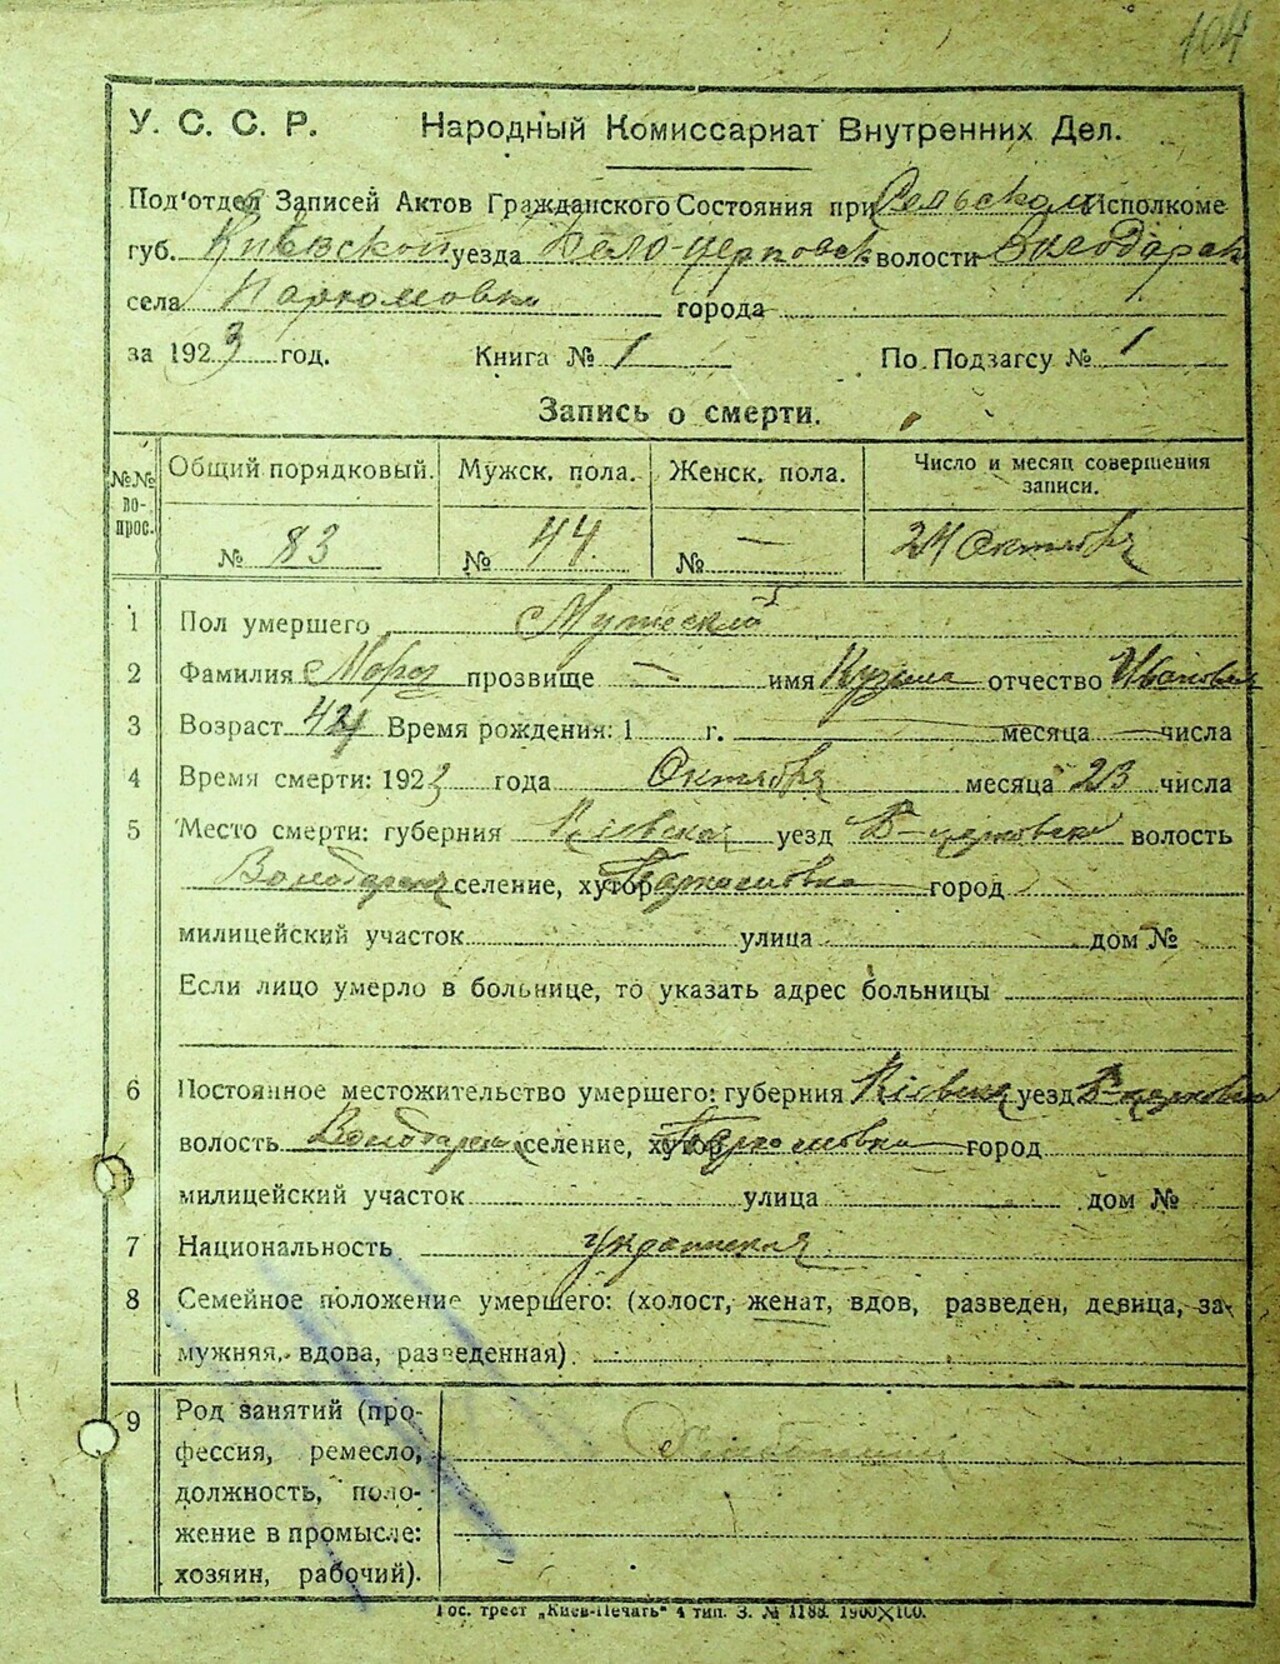 104
У. С. С. Р. Народный Комиссариат Внутренних Дел.
Под'отдел Записей Актов Гражданского Состояния при Сельском Исполкоме
губ. Киевской уезда Бело-церковск волости Володарск
села Пархомовки города
за 1923 год. Книга № 1 По Подзагсу № 1
Запись о смерти.
№№ во-прос. Общий порядковый. Мужск. пола. Женск. пола. Число и месяц совершения записи.
№ 83 № 44 № — 24 Октября
1 Пол умершего Мужской
2 Фамилия Мороз прозвище — имя Кузьма отчество Иванович
3 Возраст 42 Время рождения: 1 г. — месяца — числа
4 Время смерти: 1923 года Октября месяца 23 числа
5 Место смерти: губерния Кіевская уезд Б-церковск волость
Володарская селение, хутор Пархомовка город
милицейский участок улица дом №
Если лицо умерло в больнице, то указать адрес больницы
6 Постоянное местожительство умершего: губерния Кіевская уезд Б-церковск
волость Володарская селение, хутор Пархомовка город
милицейский участок улица дом №
7 Национальность украинская
8 Семейное положение умершего: (холост, женат, вдов, разведен, девица, за-
мужняя, вдова, разведенная)
9 Род занятий (про-
фессия, ремесло,
должность, поло-
жение в промысле:
хозяин, рабочий).
Гос. трест „Киев-Печать" 4 тип. З. № 1188. 1900×100.